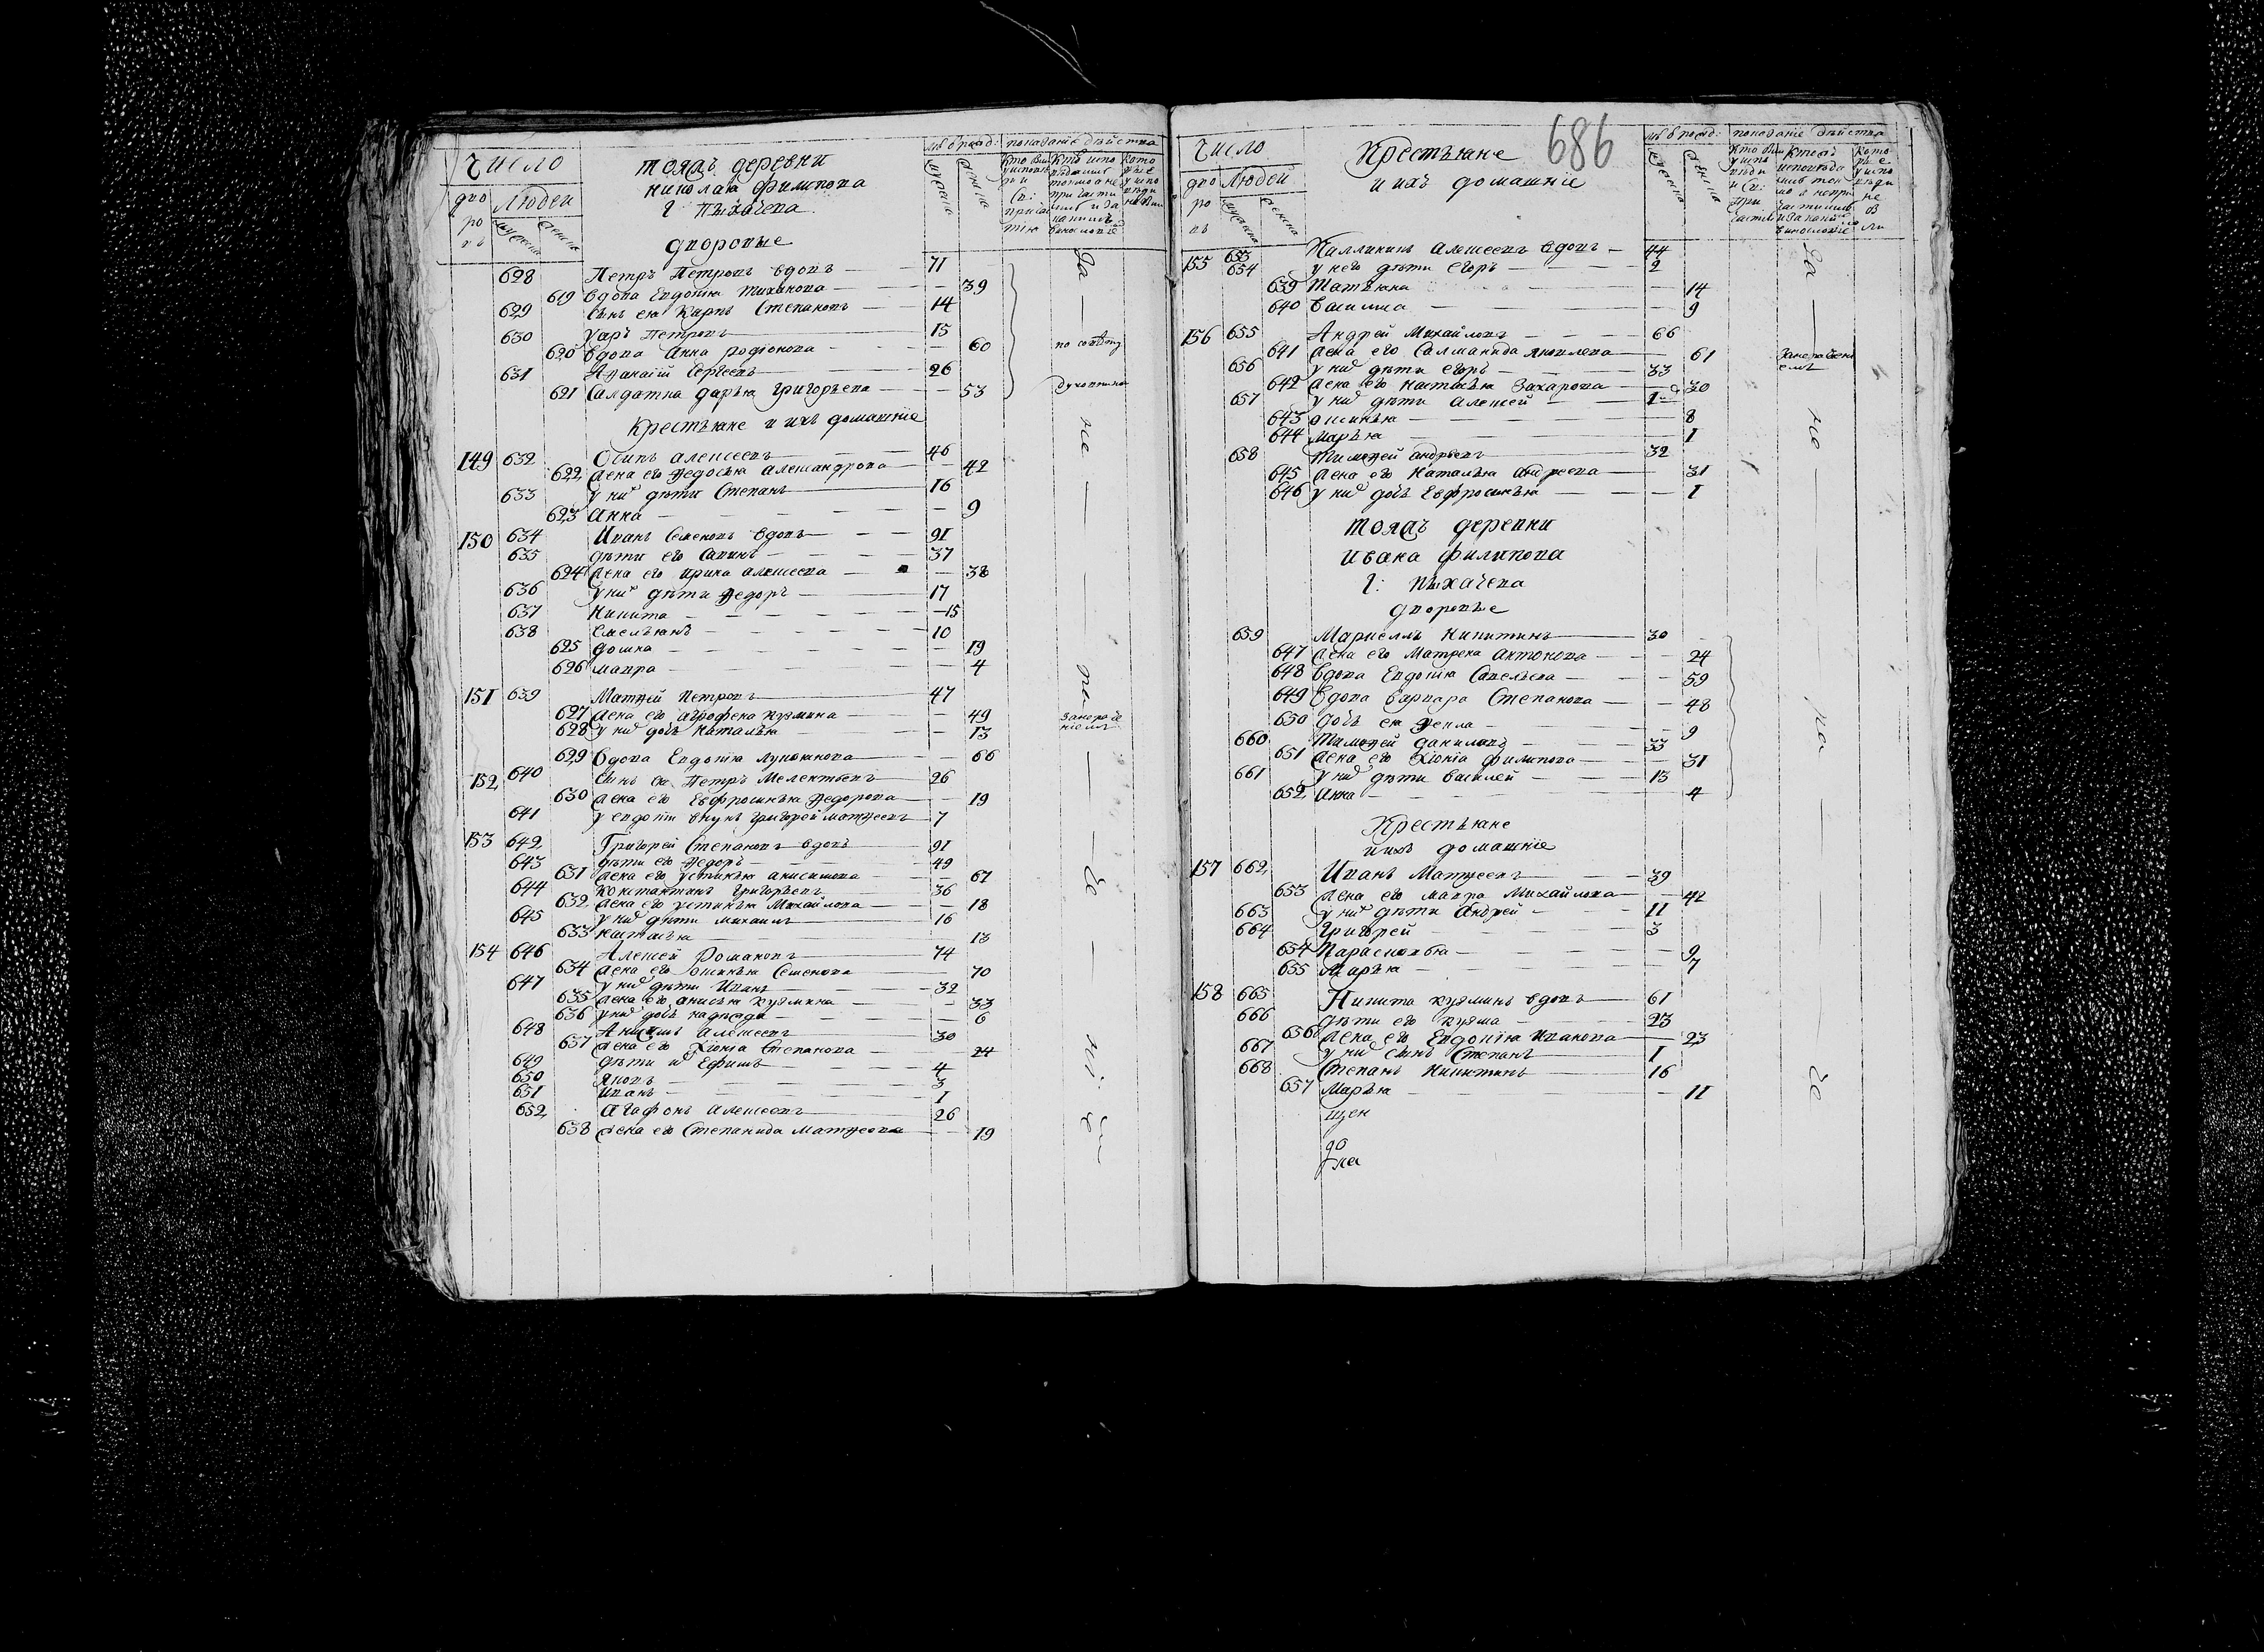 Число
дво
ро
въ
Людей
мужеска
женска
тояжъ деревни
николая филипова
г: пыхачева
дворовые
лѣ в рожд:
мужеска
женска
показаніе дѣйства
628 Петръ Петровъ вдовъ 71
619 вдова Евдокія тиханова 39
629 сынъ ея Карпъ Степановъ 14
630 Уаръ Петровъ 15
620 вдова Анна родіонова 60
631 Аѳанасій Сергѣевъ 26
621 Салдатка дарья Григорьева 53
по совѣту
духовника
Крестьяне и ихъ домашніе
149 632 Осипъ алексеевъ 46
622 жена его ѳедосья Александрова 42
633 у них дѣти Степанъ 16
623 анна 9
150 634 Иванъ Семеновъ вдовъ 91
635 дѣти его Савинъ 37
624 жена его ирина алексеева 38
636 у них дѣти ѳедоръ 17
637 Никита 15
638 Емельянъ 10
625 домна 19
626 мавра 4
151 639 Матѳей Петровъ 47
627 жена его агрофена кузмина 49
628 у них дочь наталья 13
629 вдова Евдокія лукоянова 66
152 640 сынъ ея Петръ Мелентьевъ 26
630 жена его Евфросинья ѳедорова 19
641 у евдокіи внукъ григорей матѳеевъ 7
153 642 Григорей Степановъ вдовъ 91
643 дѣти его ѳедоръ 49
631 жена его устинья анисимова 67
644 константинъ григорьевъ 36
632 жена его устинья Михайлова 18
645 у них дѣти михаилъ 16
633 настасья 13
154 646 Алексей Романовъ 74
634 жена его аксинья Семенова 70
647 у них дѣти Иванъ 32
635 жена его анисья кузмина 33
636 у них дочь надежда 6
648 Акимъ алексеевъ 30
637 жена его Хіонія Степанова 24
649 дѣти их Ефимъ 4
650 яковъ 3
651 иванъ 1
652 агафонъ алексеевъ 26
638 жена его Степанида матѳеева 19
686
Число
дво
ро
въ
Людей
мужеска
женска
Крестьяне
и ихъ домашніе
лѣ в рожд:
мужеска
женска
показаніе дѣйства
155 653 Калликинъ алексеевъ вдовъ 44
654 у него дѣти егоръ 2
639 татьяна 14
640 василиса 9
156 655 Андрей Михайловъ 66
641 жена его Салманида яковлева 61
656 у них дѣти егоръ 33
642 жена его настасья Захарова 30
657 у них дѣти алексей 1
643 аксинья 8
644 марья 1
658 тимоѳей андреевъ 32
645 жена его наталья андреева 31
646 у них дочь евфросинья 1
тояжъ деревни
ивана филипова
г: пыхачева
дворовые
659 Маркеллъ никитинъ 30
647 жена его матрена антонова 24
648 вдова Евдокія Савельева 59
649 вдова варвара Степанова 48
650 дочь ея ѳекла 9
660 тимоѳей даниловъ 33
651 жена его Хіонія филипова 31
661 у них дѣти василей 13
652 анна 4
Крестьяне
и ихъ домашніе
157 662 Иванъ Матѳеевъ 39
653 жена его мавра Михайлова 42
663 у них дѣти андрей 11
664 григорей 3
654 парасковья 9
655 марья 7
158 665 Никита кузминъ вдовъ 61
666 дѣти его кузма 23
656 жена его Евдокія иванова 23
667 у них сынъ Степанъ 1
668 Степанъ никитинъ 16
657 марья 11
щен
до